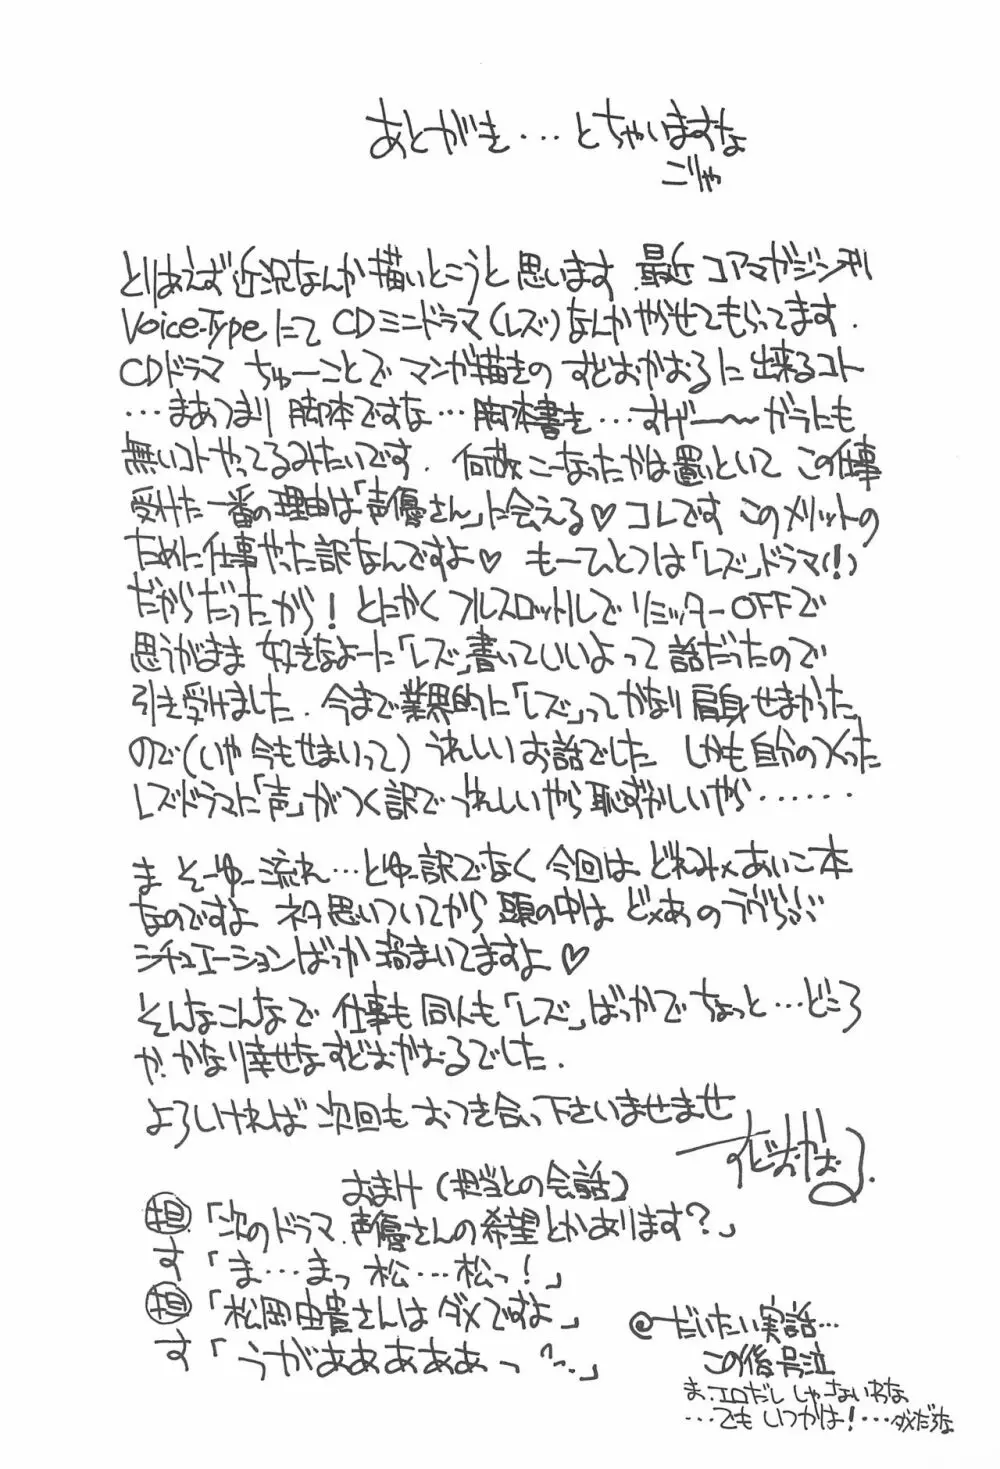 あとがき・・・とちゃいますな
こりゃ
とりあえず近況なんか描いとこうと思います.最近コアマガジン刊
Voice-Typeにて CDミニドラマ(レズ)なんかやらせてもらってます.
CDドラマ ちゅーことで マンガ描きの すどおかおるに 出来るコト
・・・まあつまり 脚本ですな…脚本書き…すげー〜がらにも
無いコトやってるみたいです. 何故こーなったかは置いといて この仕事
受けた一番の理由は「声優さん」に会える♡ コレです このメリットの
ために仕事やった訳なんですよ♡ もーひとつは「レズ」ドラマ(!)
だからだったから! とにかく フルスロットルで リミッターOFFで
思うがまま 好きなよーに「レズ」書いていいよって 話だったので
引き受けました.今まで業界的に「レズ」ってかなり肩身せまかった
ので(いや今もせまいって) うれしいお話でした しかも自分のつくった
レズドラマに「声」がつく訳で うれしいやら 恥ずかしいやら・・・・・・
ま そーゆー流れ…とゆー訳でなく 今回は どれみ×あいこ本
なのですよ ネタ思いついてから 頭の中は ど×あのラヴらぶ
シチュエーションばっか渦まいてますよ♡
そんなこんなで 仕事も 同人も「レズ」ばっかで ちょっと…どころ
か.かなり幸せな すどおかおるでした.
よろしければ 次回も おつき合い下さいませませ
すどおかおる.
おまけ(担当との会話)
担「次のドラマ.声優さんの希望とかあります?」
す「ま…まっ 松…松っ!」
担「松岡由貴さんは ダメですよ」
す「うがあああああっ 〜…」
@だいたい実話…
この後号泣
ま、エロだし しゃーないわな
…でも いつかは!…ダメだろな